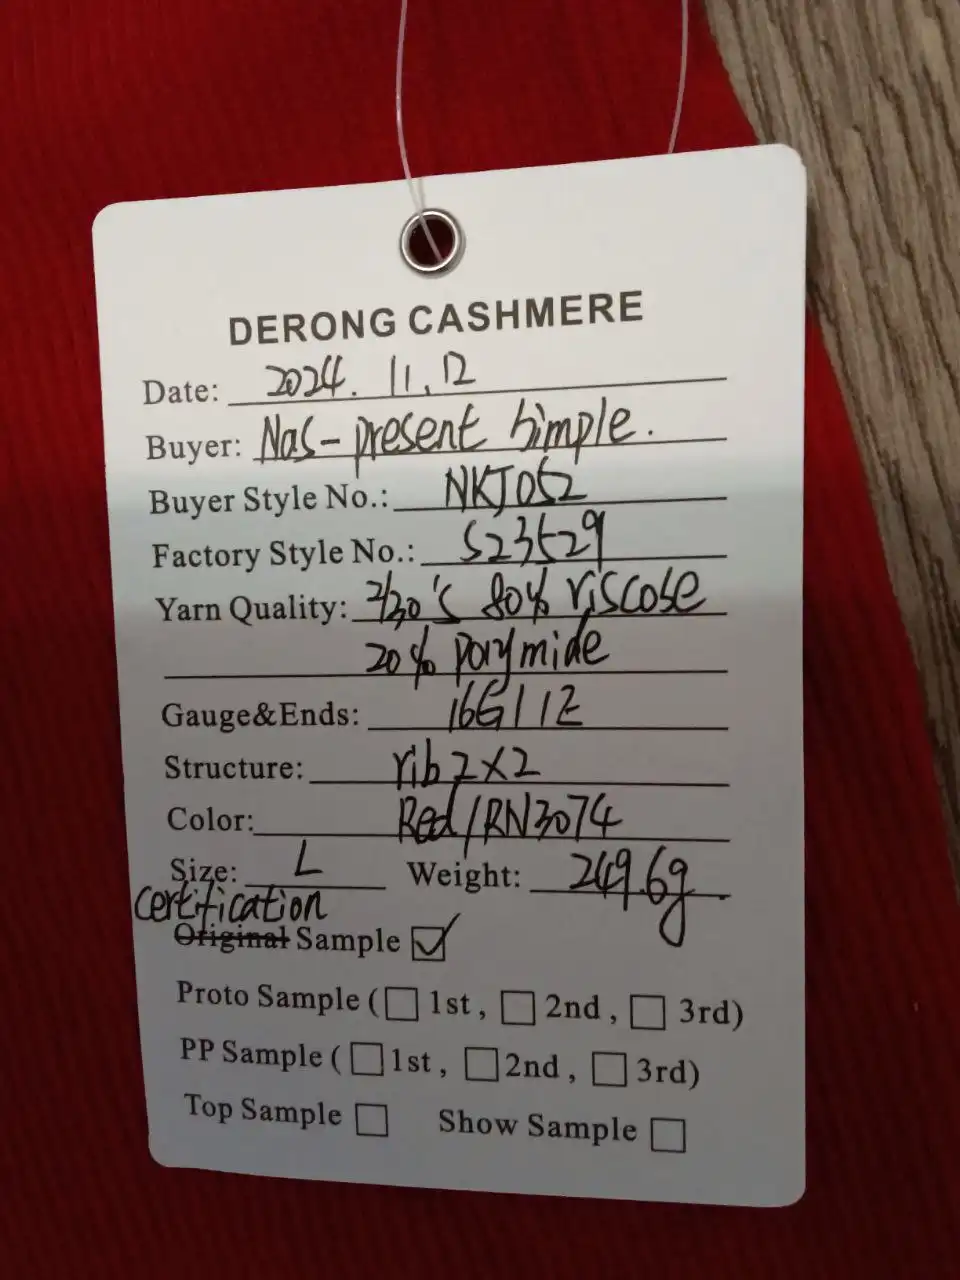 DERONG CASHMERE
Date: 2024. 11. 12
Buyer: Nas-present Simple.
Buyer Style No.: NKJ052
Factory Style No.: S23529
Yarn Quality: 2/30's 80% viscose
20% Polymide
Gauge&Ends: 16G11E
Structure: rib 2X2
Color: Red/RN3074
Size: L Weight: 249.6g
certification
Original Sample ☑
Proto Sample (☐ 1st, ☐ 2nd, ☐ 3rd)
PP Sample (☐ 1st, ☐ 2nd, ☐ 3rd)
Top Sample ☐ Show Sample ☐